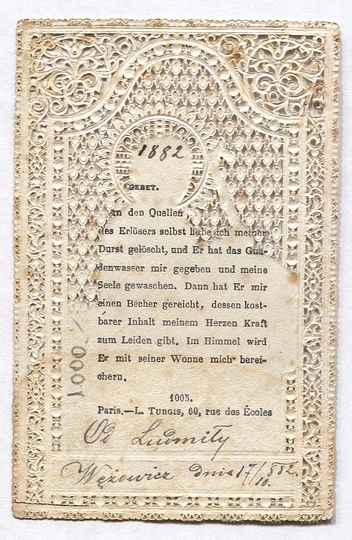 1882
GEBET.
An den Quellen
des Erlösers selbst habe ich meinen
Durst gelöscht, und Er hat das Gna-
denwasser mir gegeben und meine
Seele gewaschen. Dann hat Er mir
einen Becher gereicht, dessen kost-
barer Inhalt meinem Herzen Kraft
zum Leiden gibt. Im Himmel wird
Er mit seiner Wonne mich berei-
chern.
1000
1005.
Paris.—L. TURGIS, 60, rue des Écoles
Od Ludmiły
Wężowicz dnia 17/10. 1882.